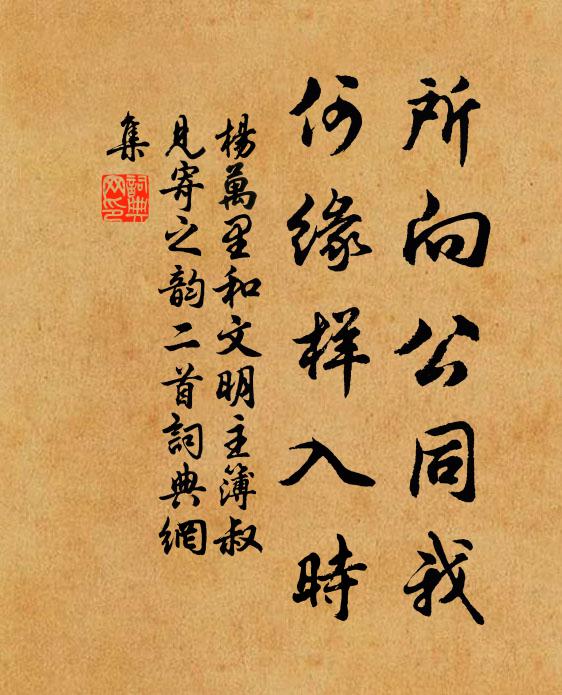 所向公同我
何缘样入時
楊萬里和文明主簿叔
見寄之韵二首詞典網
集
詞典
网印